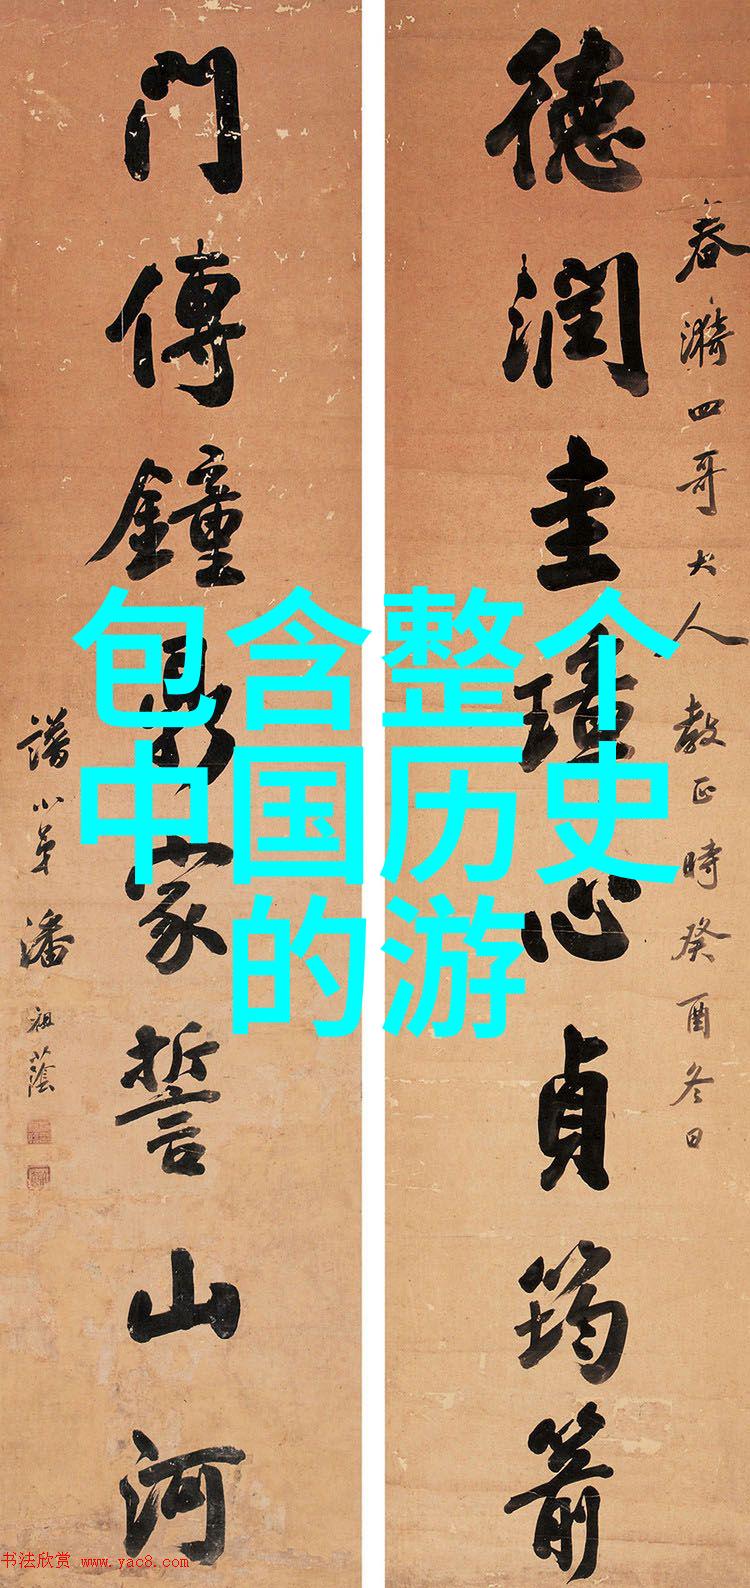 春漪四哥大人教正時癸酉冬日
德潤圭璋心貞筠箭
門傳鐘鼎家誓山河
譜小弟潘祖蔭
包含整个
中国历史
的游
书法欣赏 www.yac8.com